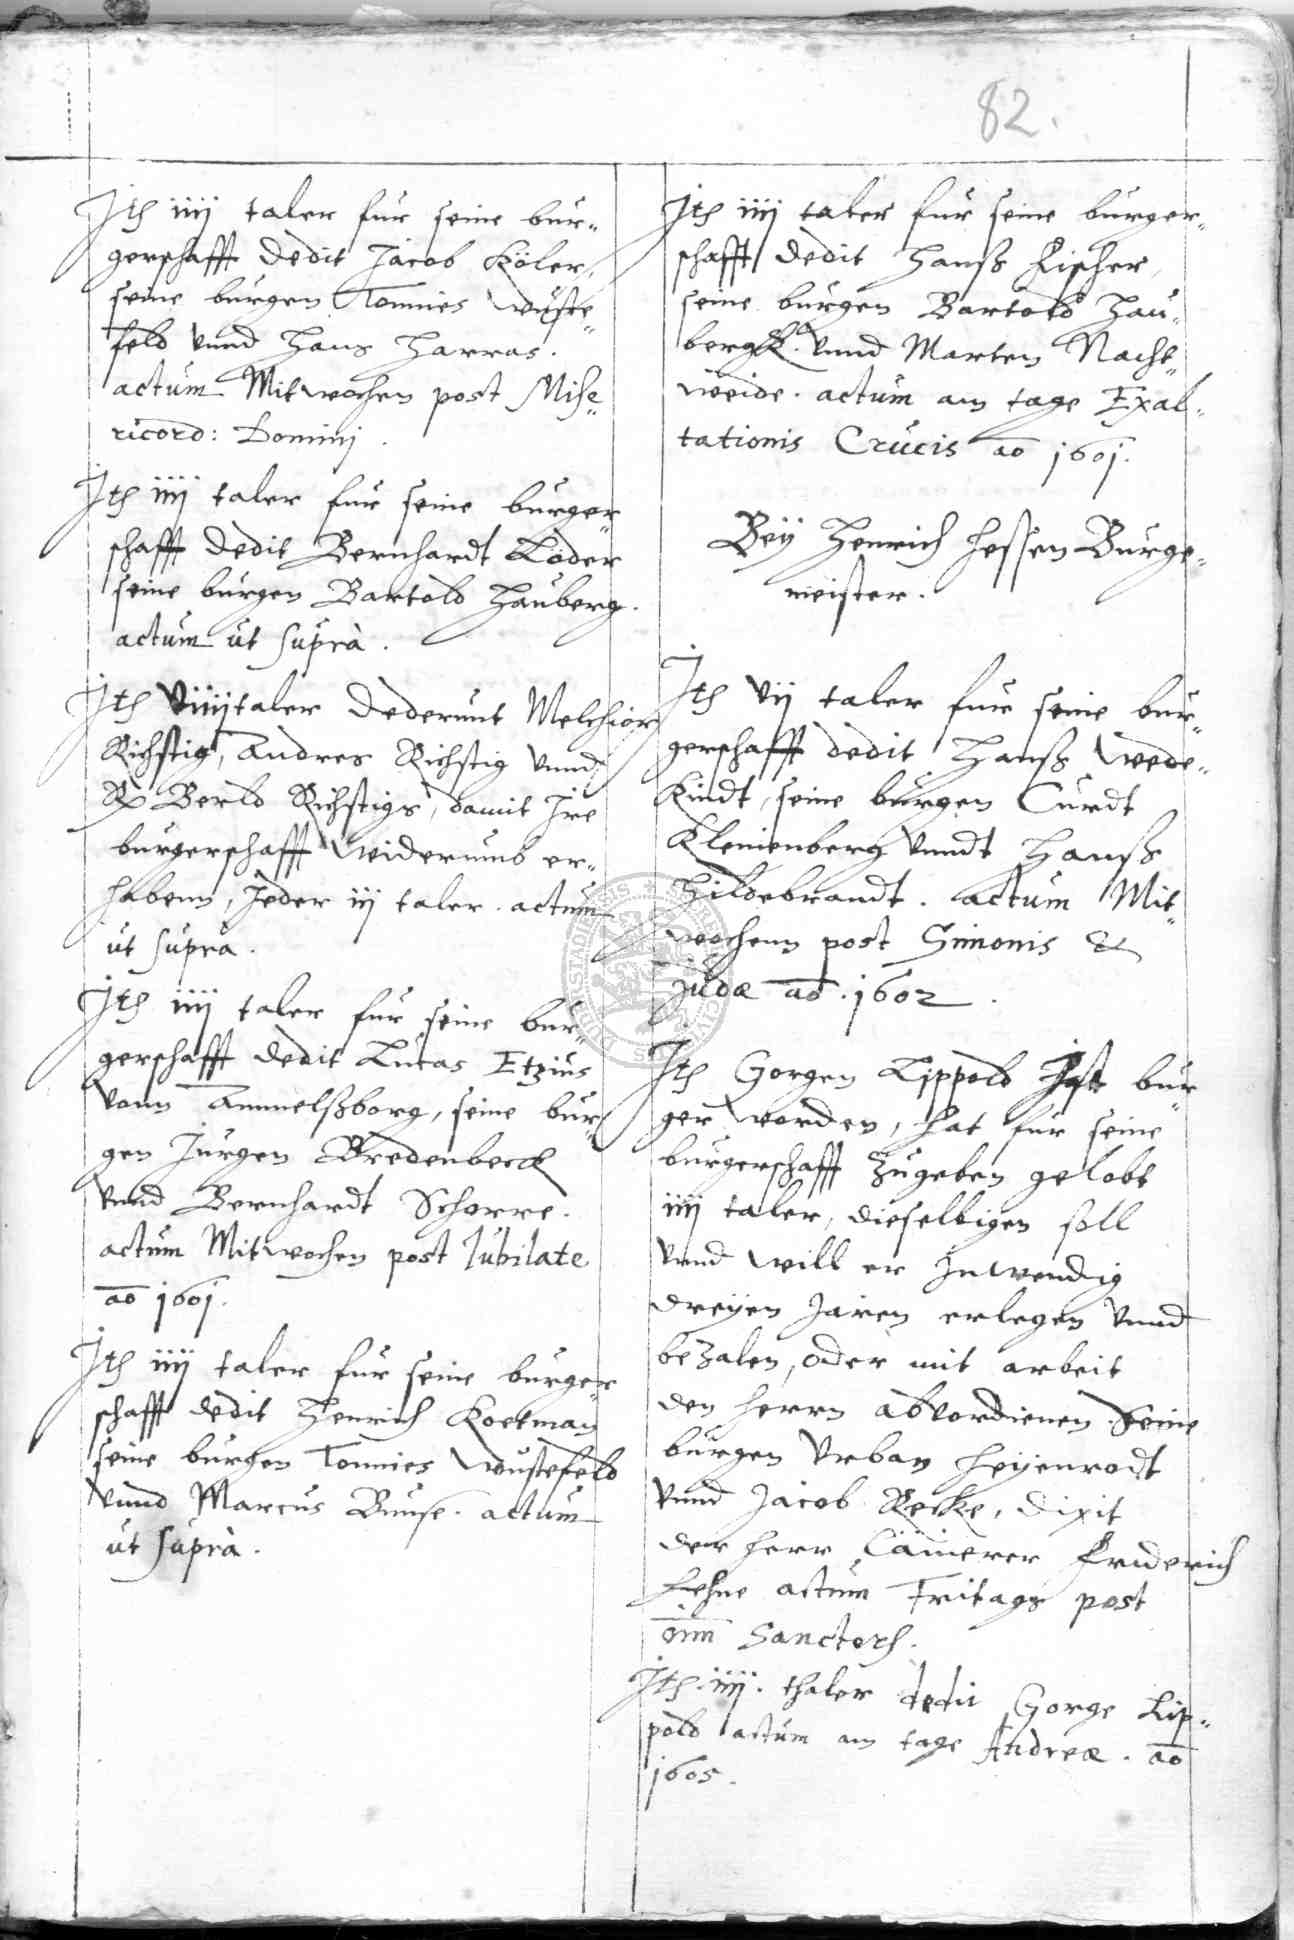 82.
Jth iiij taler fur seine bur„
gerschafft dedit Jacob Köler,
seine burgen Tonnies Wuste„
feld vnnd Hans Harras.
actum Mitwochen post Mise„
ricord: Domini.
Jth iiij taler fur seine burger„
schafft dedit Bernhardt Löder
seine burgen Bartold Hauberg.
actum ut suprà.
Jth viiij taler dederunt Melchior
Richstig, Andres Richstig vnnd
Berld Richstigs, damit Jre
burgerschafft widerumb er„
habenn, Jeder iij taler. actum
ut suprà.
Jth iiij taler fur seine bur„
gerschafft dedit Lucas Etzius
vonn Ammelßborg, seine bur„
gen Jurgen Bredenbeck
vnnd Bernhardt Schorre.
actum Mitwochen post Jubilate
ao 1601.
Jth iiij taler fur seine burger„
schafft dedit Henrich Koetman
seine burgen Tonnies Wustefeld
vnnd Marcus Bunse. actum
ut suprà.
Jth iiij taler fur seine burger„
schafft dedit Hanß Fischer,
seine burgen Bartold Hau„
bergk vnnd Marten Nacht„
weide. actum am tage Exal„
tationis Crucis ao 1601.
Beÿ Henrich Hessen Burge„
meister.
Jth vij taler fur seine bur„
gerschafft dedit Hanß Wede„
kindt, seine burgen Curdt
Klenienberg vnndt Hanß
Hildebrandt. actum Mit„
wochenn post Simonis &
Judæ ao. 1602.
Jth Gorgen Lippold Jst bur„
ger worden, hat fur seine
burgerschafft zugeben gelobt
iiij taler, dieselbigen soll
vnnd will er Jnwendig
dreÿen Jaren erlegen vnnd
bezalen, oder mit arbeit
den herrn abvordienen. Seine
burgen Vrban Heÿenrodt
vnnd Jacob Recke, dixit
der herr Cämerer Friderich
Lehne actum Fritags post
oim Sanctorh.
Jth. iiij. thaler dedit Gorge Lip„
pold actum am tage Andreæ. ao
1605.